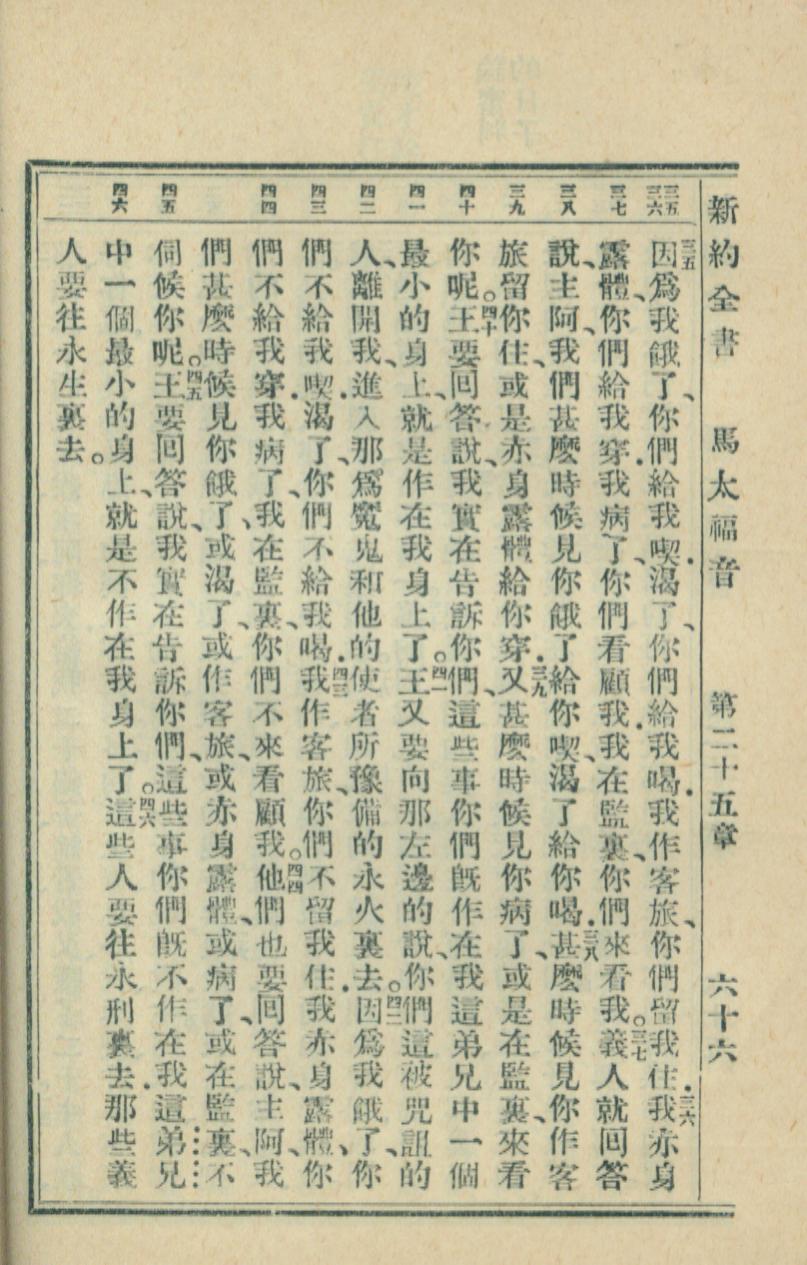 新約全書 馬太福音 第二十五章 六十六
三五 三六 三七 三八 三九 四十 四一 四二 四三 四四 四五 四六
三五因爲我餓了、你們給我喫．渴了、你們給我喝．我作客旅、你們留我住．三六我赤身
露體、你們給我穿．我病了、你們看顧我．我在監裏、你們來看我。三七義人就回答
說、主阿、我們甚麼時候見你餓了給你喫、渴了給你喝．三八甚麼時候見你作客
旅留你住、或是赤身露體給你穿．三九又甚麼時候見你病了、或是在監裏、來看
你呢。四十王要回答說、我實在告訴你們、這些事你們旣作在我這弟兄中一個
最小的身上、就是作在我身上了。四一王又要向那左邊的說、你們這被咒詛的
人、離開我、進入那爲魔鬼和他的使者所豫備的永火裏去。四二因爲我餓了、你
們不給我喫．渴了、你們不給我喝．四三我作客旅、你們不留我住．我赤身露體、你
們不給我穿．我病了、我在監裏、你們不來看顧我。四四他們也要回答說、主阿、我
們甚麼時候見你餓了、或渴了、或作客旅、或赤身露體、或病了、或在監裏、不
伺候你呢。四五王要回答說、我實在告訴你們、這些事你們旣不作在我這弟兄
中一個最小的身上、就是不作在我身上了。四六這些人要往永刑裏去．那些義
人要往永生裏去。